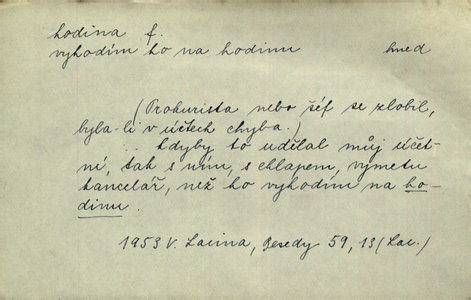 hodina f.
vyhodím ho na hodinu hned
(Prokurista nebo šéf se zlobil,
byla-li v účtech chyba.)
.. kdyby to udělal můj účet-
ní, tak s ním, s chlapem, vymetu
kancelář, než ho vyhodím na ho-
dinu.
1953 V. Lacina, Besedy 59, 13 (Lac.)